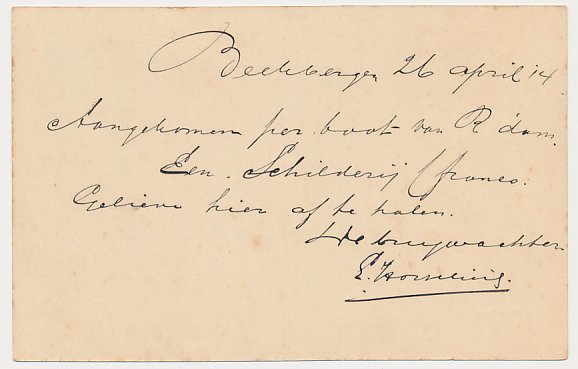 Beekbergen 26 april '14
Aangekomen per boot van R'dam.
Een Schilderij (franco:
Gelieve hier af te halen.
de brugwachter